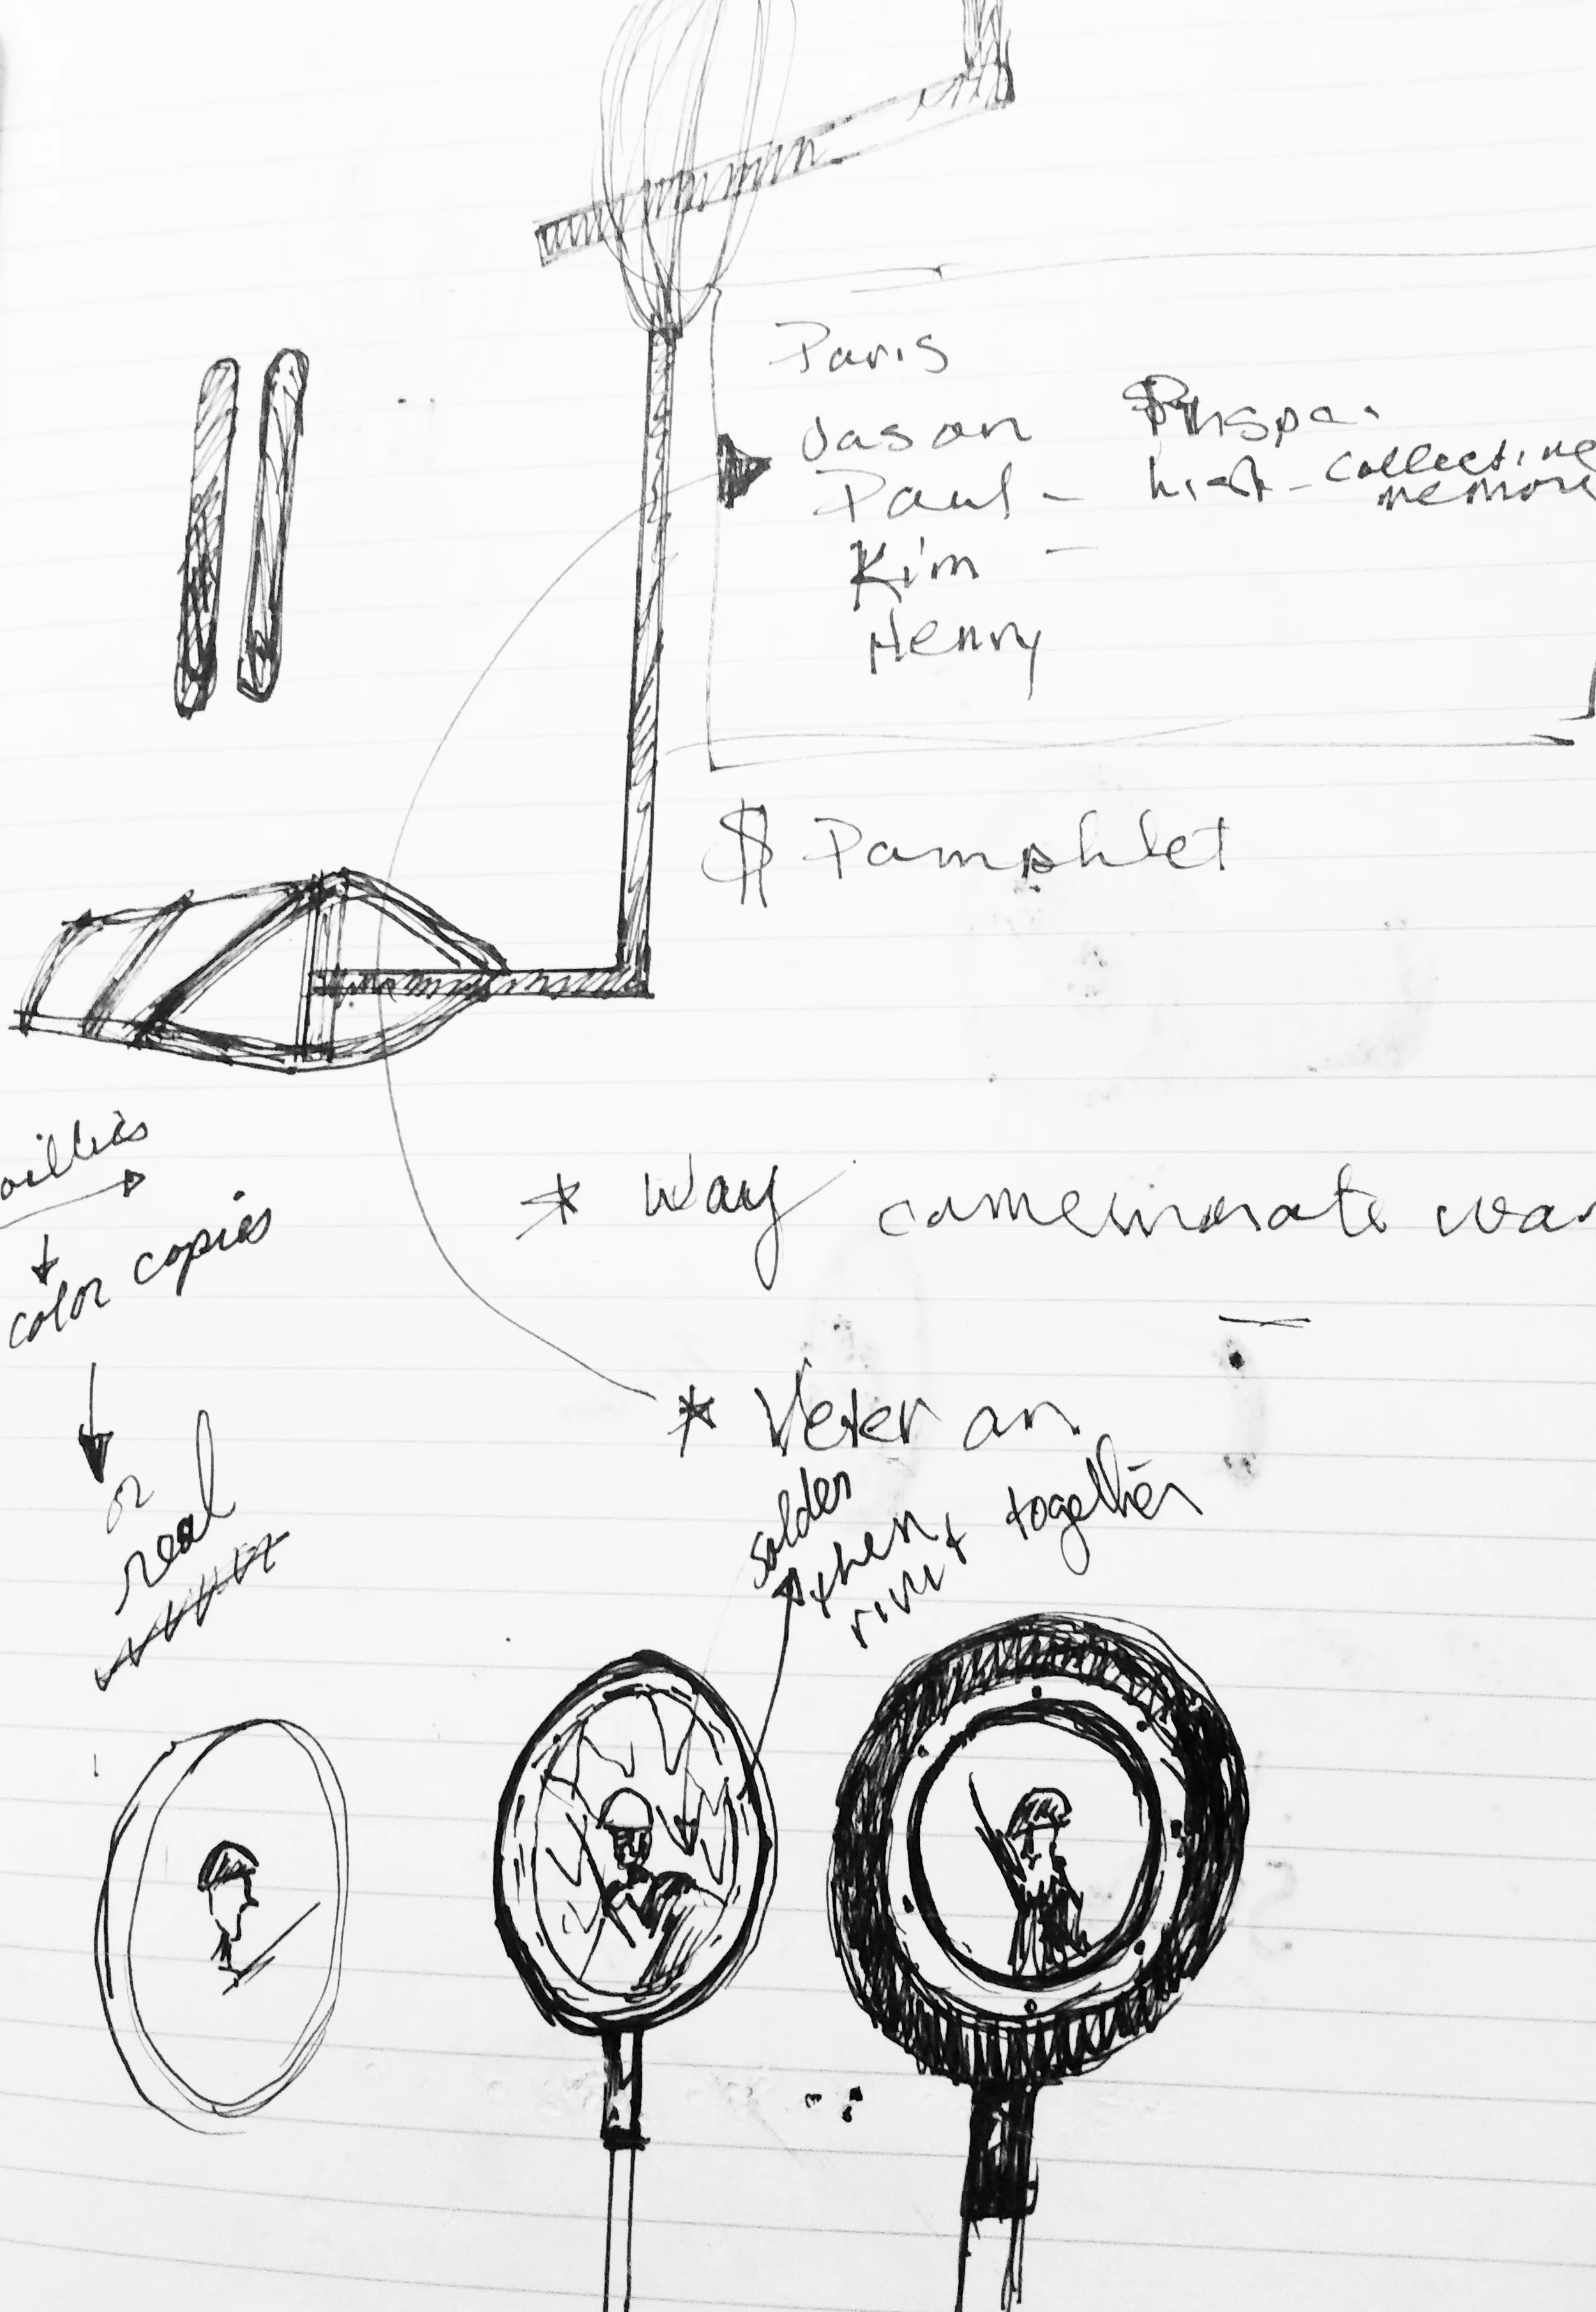 Paris
Jason
Paul -
hist - collective
memory
Kim -
Henry
$ Pamphlet
color copies
* Way comemorate war
or
real
* Veteran
solder
then
rivet together